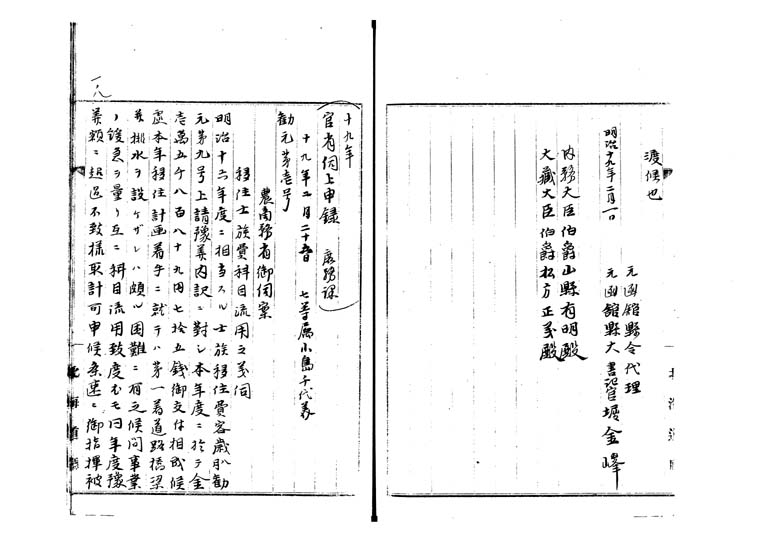 渡候也
明治十九年二月一日
元函館縣令代理
元函館縣大書記官堀金峰
内務大臣伯爵山縣有朋殿
大藏大臣伯爵松方正義殿
十九年
官省伺上申録 庶務課
十九年二月二十五日 七等属小島千代義
勧元第壱号
農商務省御伺案
移住士族費科目流用之義伺
明治十六年度ニ相当スル士族移住費客歳八勧
元第九号上請豫算内訳ニ對シ本年度ニ於テ金
壱萬五千八百八十九円七拾五銭御交付相成候
處本年移住計画着手ニ就テハ第一着道路橋梁
并排水ヲ設ケザレハ頗ル困難ニ有之候間事業
ノ緩急ヲ量リ互ニ科目流用致度尤モ同年度豫
算額ニ超過不致様取計可申候条速ニ御指揮被
一八
北海道廳
北海道廳